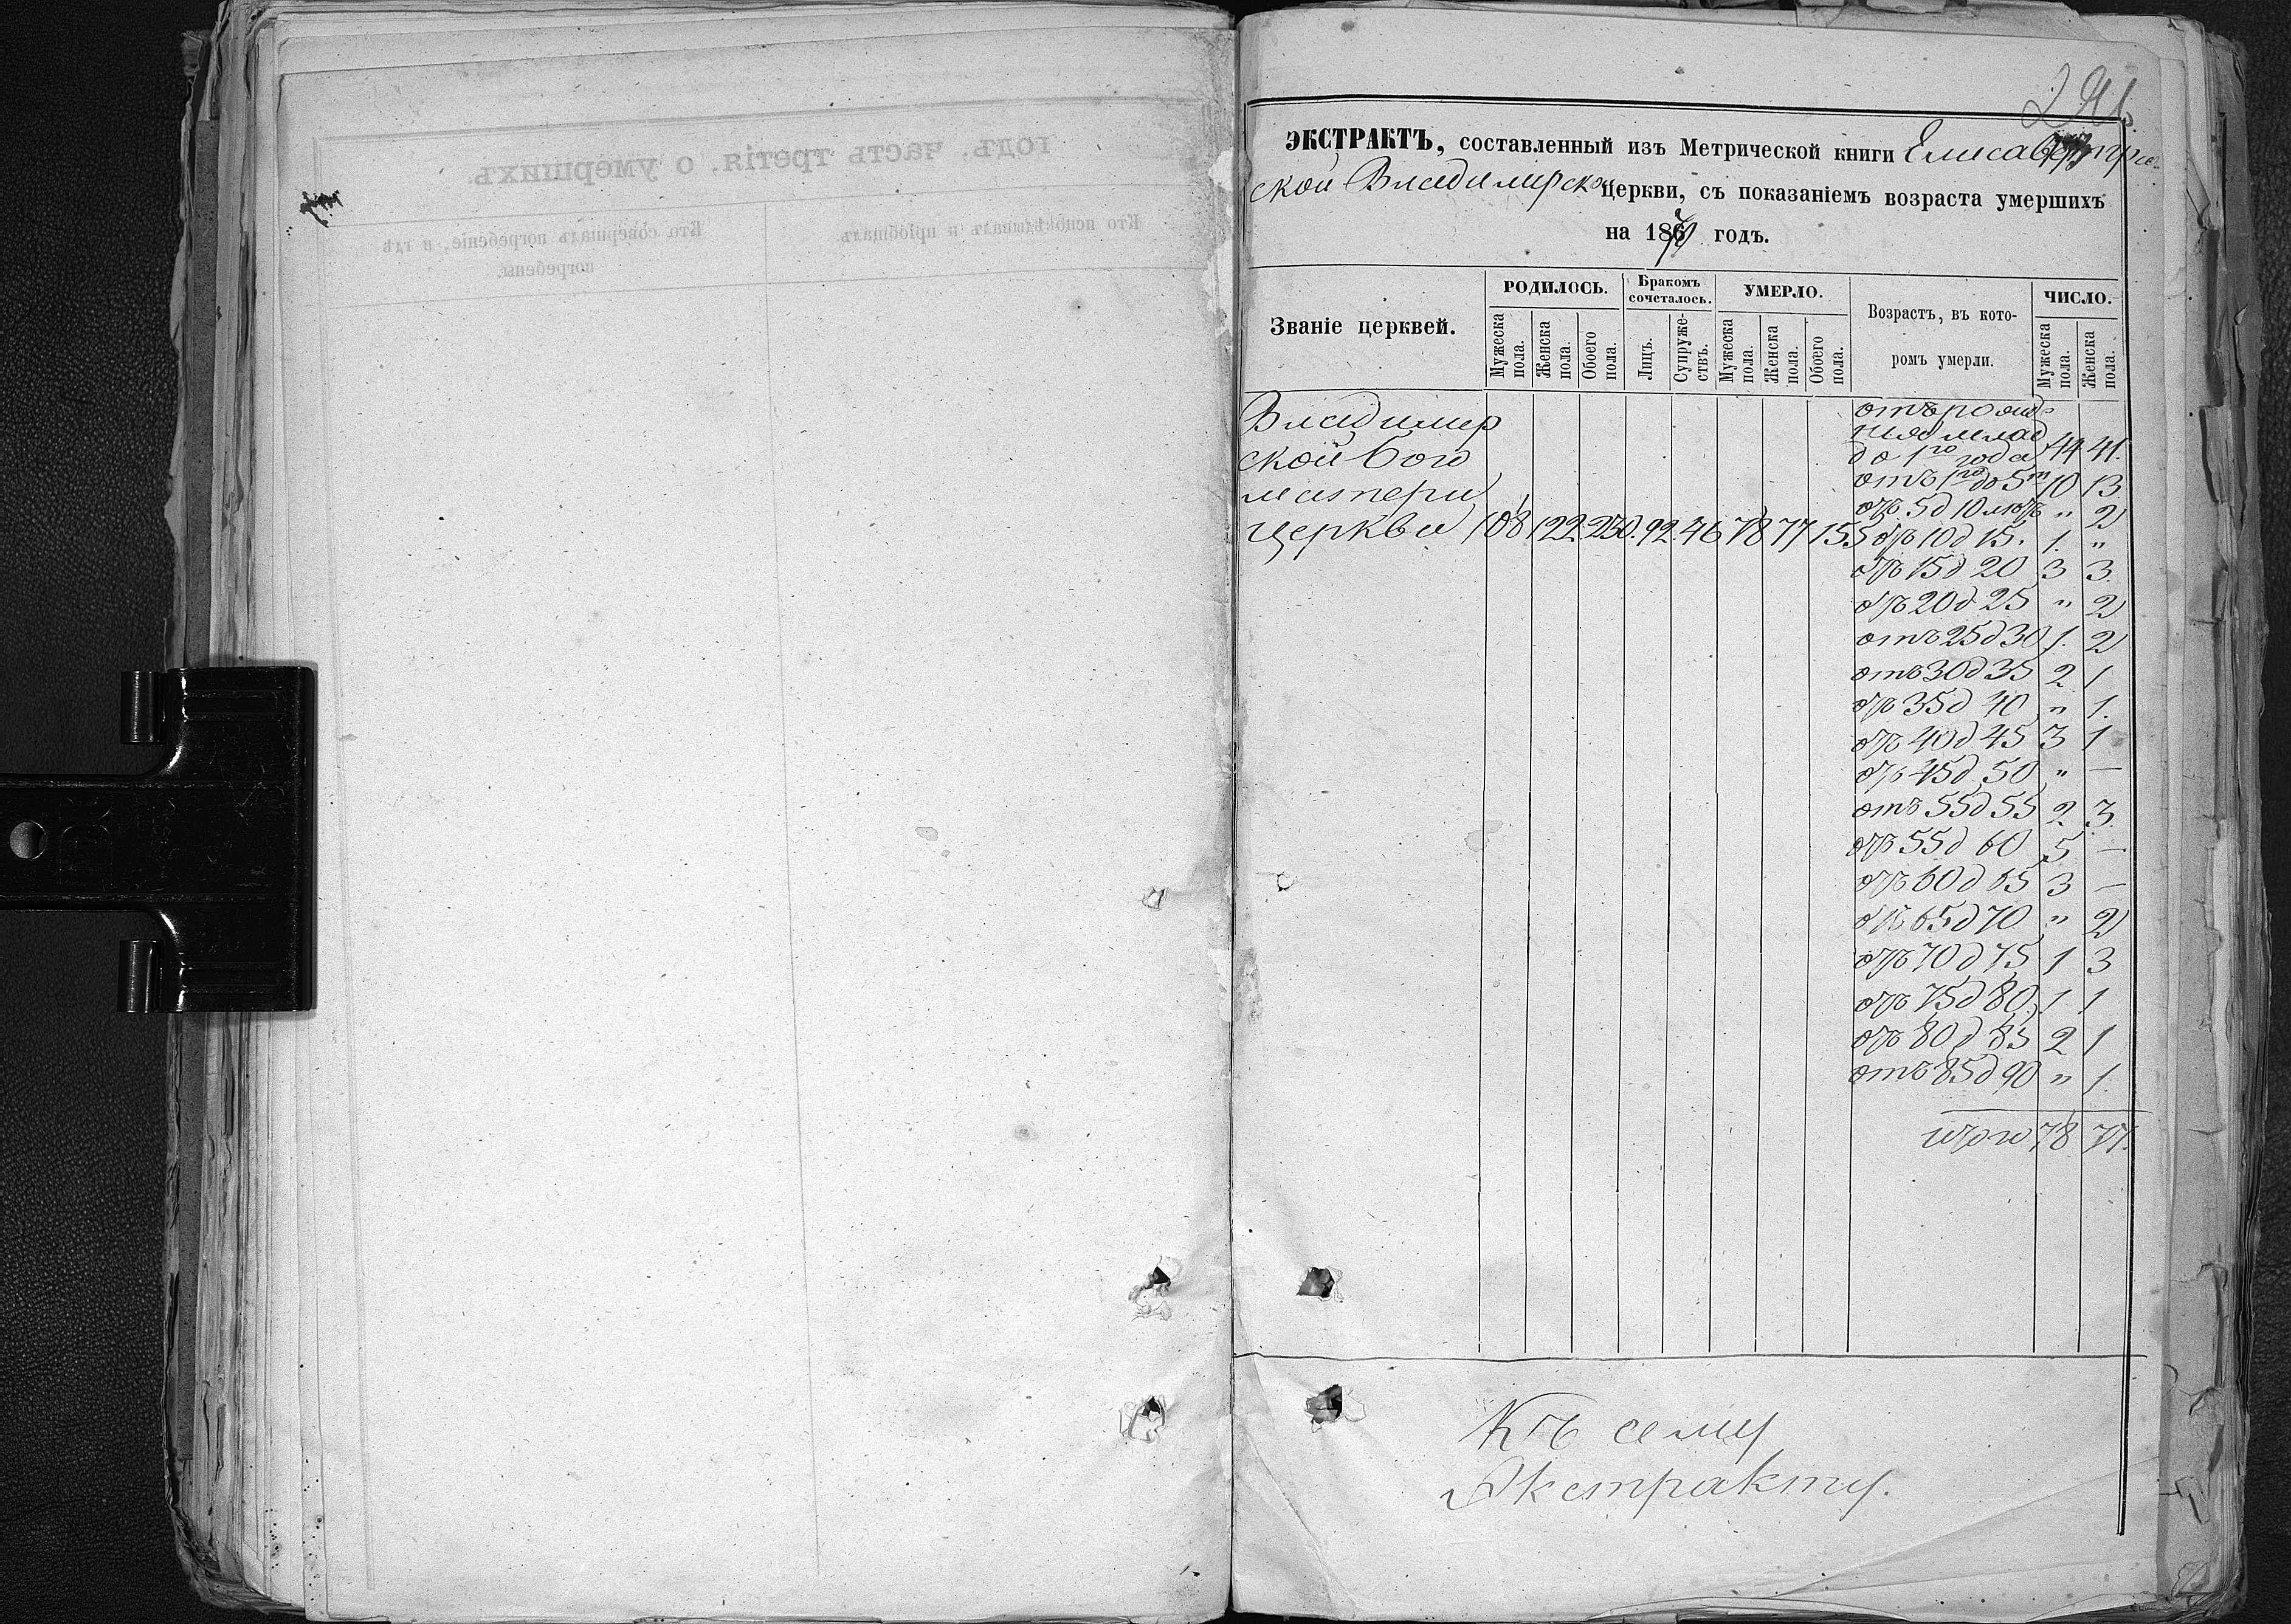 ЭКСТРАКТЪ, составленный изъ Метрической книги Елисаветгра
ской Владимирской церкви, съ показаніемъ возраста умершихъ
на 187 годъ.
Званіе церквей.
РОДИЛОСЬ. Бракомъ сочеталось. УМЕРЛО. Возрастъ, въ кото-
ромъ умерли. ЧИСЛО.
Мужеска пола. Женска пола. Обоего пола. Лицъ. Супруже-ствъ. Мужеска пола. Женска пола. Обоего пола. Мужеска пола. Женска пола.
Владимир
ской Бого
матери
церкви 108 122. 230. 92. 46 78 77 155
отъ рожде
нія млад
до 1го года 44. 41.
отъ 1го до 5ти 10 13
отъ 5 д 10 летъ " 2
отъ 10 д 15. 1. "
отъ 15 д 20 3 3.
отъ 20 д 25 " 2
отъ 25 д 30 1. 2
отъ 30 д 35 2 1
отъ 35 д 40 " 1.
отъ 40 д 45 3 1
отъ 45 д 50 " —
отъ 55 д 55 2 3.
отъ 55 д 60 5 —
отъ 60 д 65 3 —
отъ 65 д 70 " 2
отъ 70 д 75 1 3
отъ 75 д 80 1 1
отъ 80 д 85 2 1
отъ 85 д 90 " 1.
итого 78 77.
Къ сему
Экстракту.
годъ, часть третія, о умершихъ.
Кто исповѣдывалъ и пріобщалъ.
Кто совершалъ погребеніе, и гдѣ
погребены.